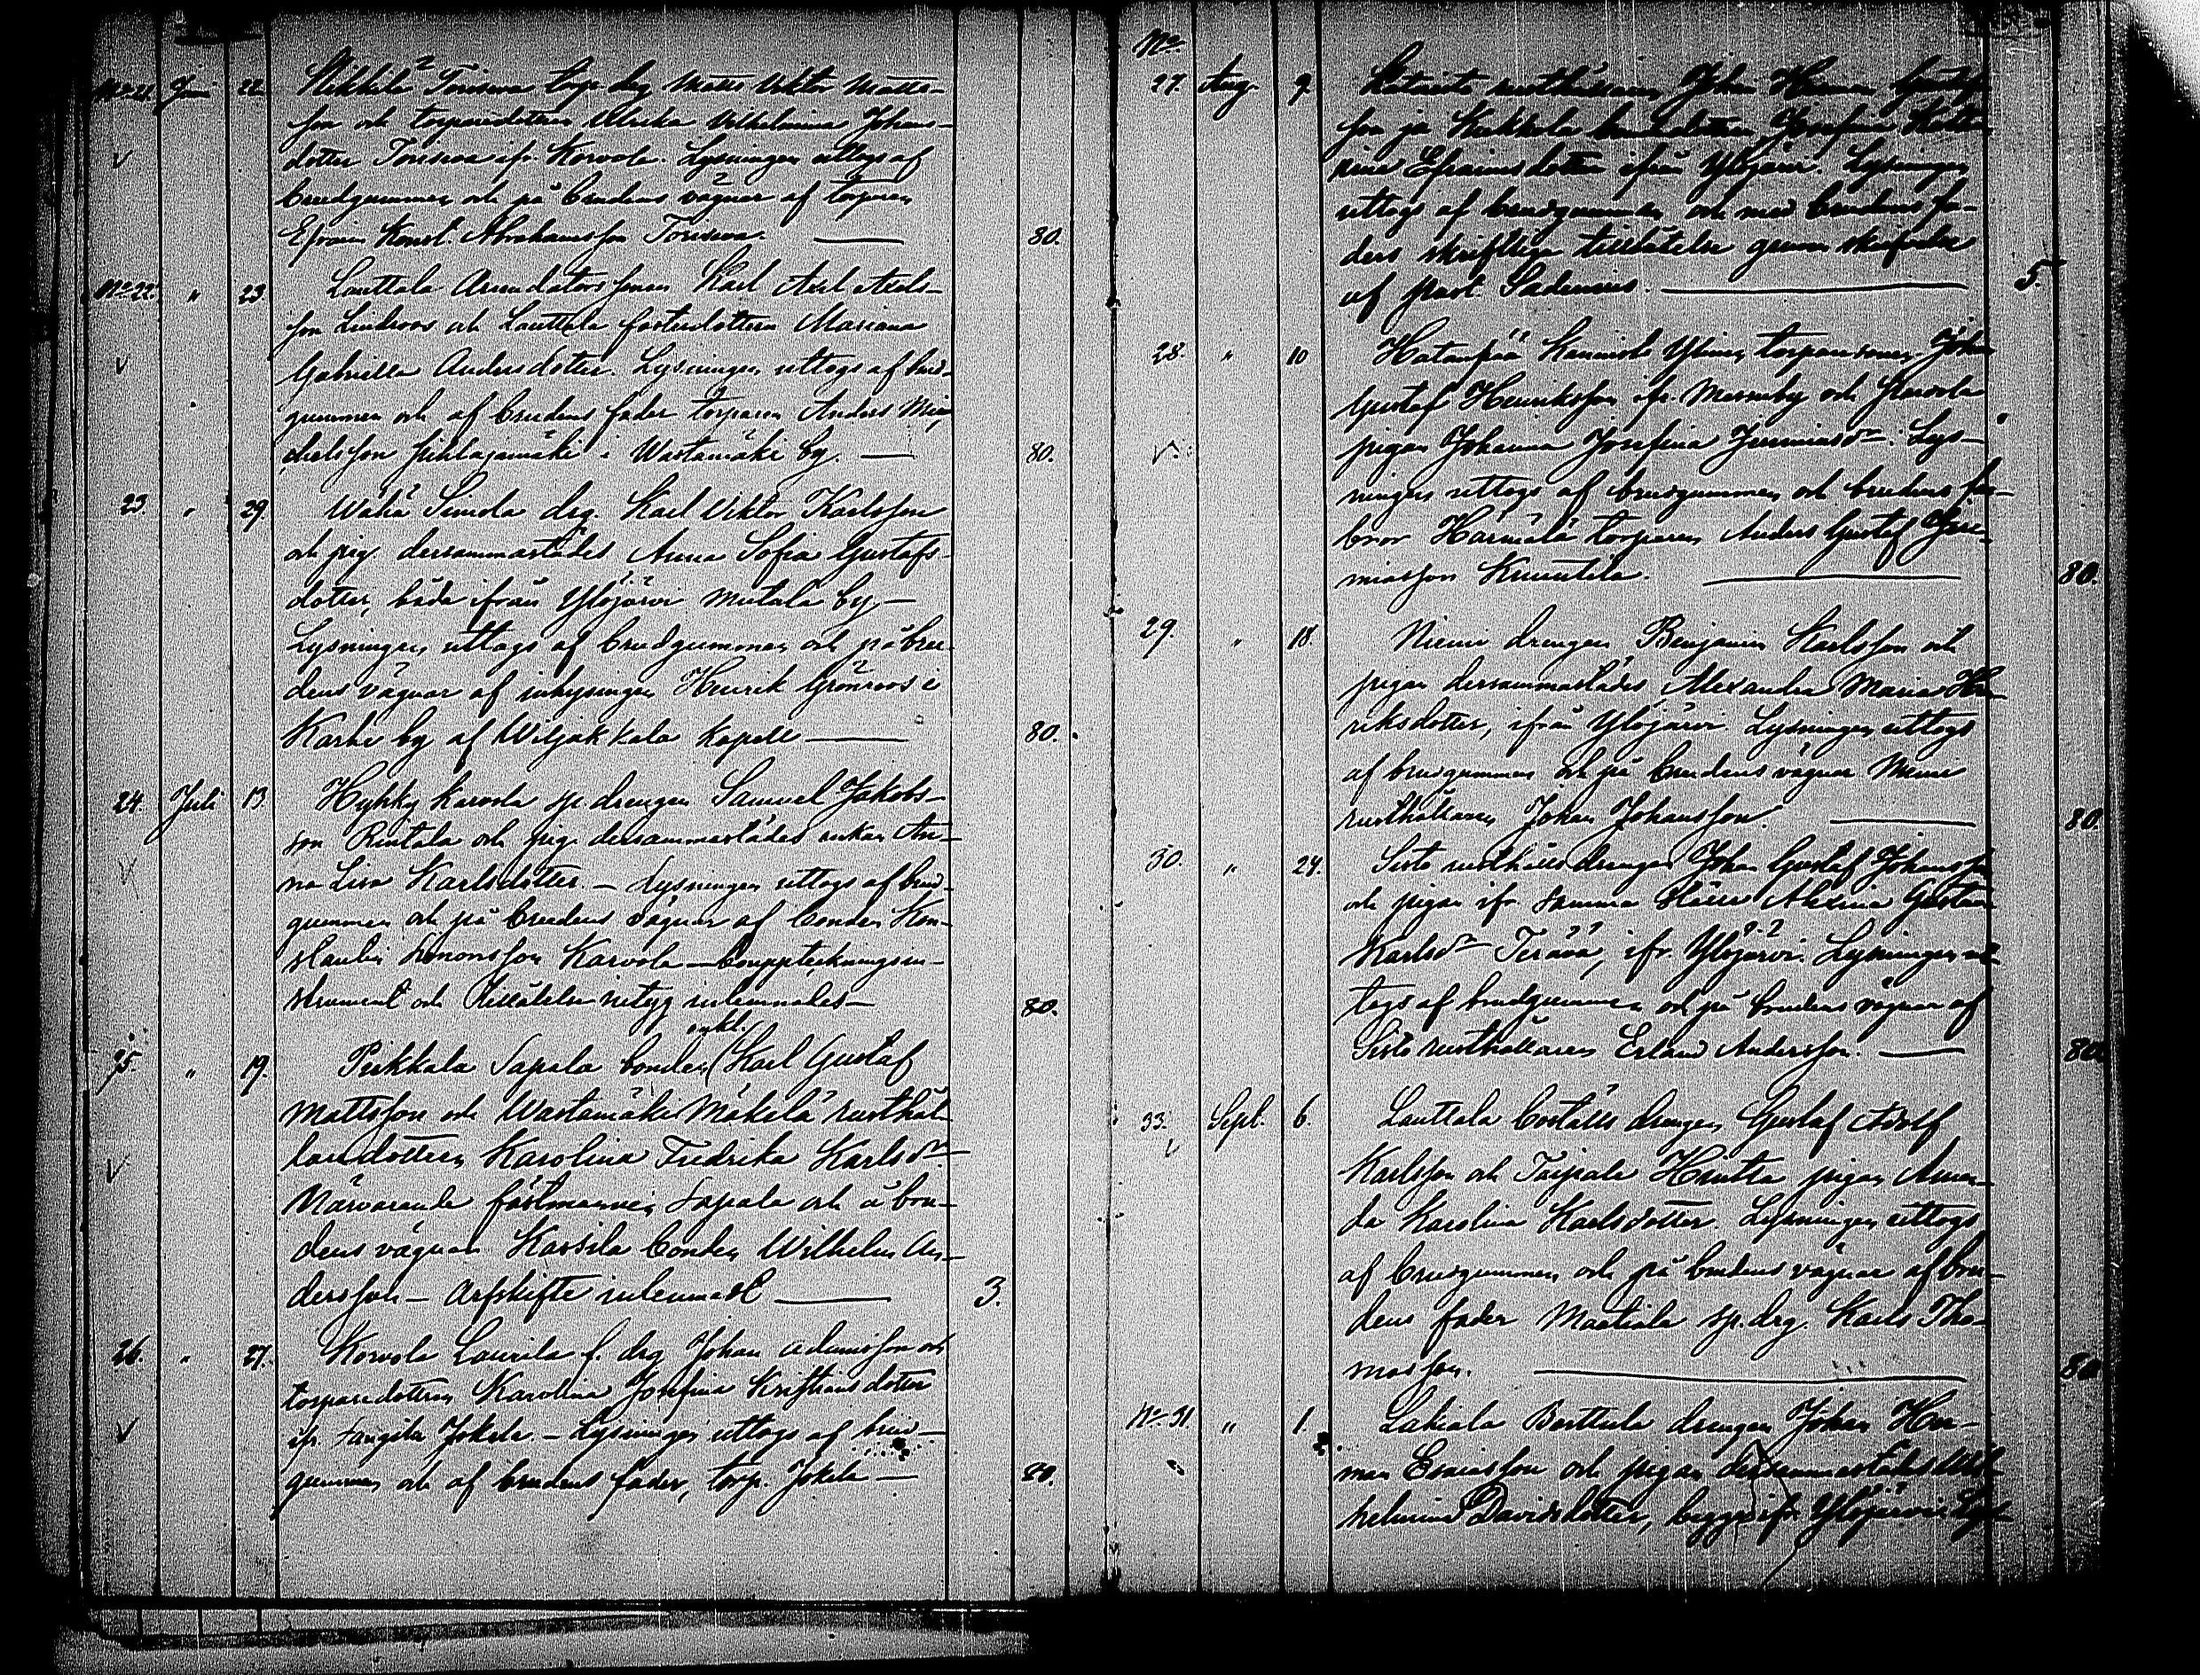 No 21. Juni 22. Nikkilä Toivana torp. drg. Matts Viktor Matts-
son och torparedottren Ulrika Wilhelmina Johans-
dotter ifr. Korvola. Lysningen uttogs af
brudgummen och på brudens vägnar af torparen
Efraim Konst. Abrahamsson 80.
No 22. " 23 Lauttala Arrendators sonen Karl Axel Axels-
son Lindroos och Lauttala fosterdottren Mariana
Gabriella Andersdotter. Lysningen uttogs af brud-
gummen och af brudens fader torparen Anders Mi-
chelsson Pihlajamäki i Wastamäki by. 80.
23. " 29. Wähä Simola drg. Karl Viktor Karlsson
och pig. dersammastädes Anna Sofia Gustafs-
dotter, båda ifrån Ylöjärvi Mutala by,—
Lysningen uttogs af brudgummen och på bru-
dens vägnar af inhysingen Henrik Grönroos i
Karhe by af Wiljakkala Kapell 80.
24. Juli 13 Hyhky Karvola sp. drengen Samuel Jakobs-
son Rintala och pig. dersammastädes enkan An-
na Lisa Karlsdotter. — Lysningen uttogs af brud-
gummen och på brudens vägnar af bonden Kon-
stantin Simonsson Karvola — bouppteckningsin-
strument och tillåtelse betyg inlemnades— 80.
25. " 19. Pirkkala Sapala bonden (Karl Gustaf
Mattsson och Wastamäki Mäkelä rusthål-
laredottren Karolina Fredrika Karlsdr.—
Närvarande fästmannen Sapala och å bru-
dens vägnar Kassila bonden Wilhelm An-
dersson — Arfskifte inlemnadt 3.
26. " 27. Korvola Laurila f. drg Johan Adamsson och
torparedottren Karolina Josefina Kristiansdotter
ifr. Jokela. — Lysningen uttogs af brud-
gummen och af brudens fader, torp. Jokela — 80.
No
27. Aug. 9. rusthållaren Johan Herman
son ja Josefina
Efraimsdotter ifrån Ylöjärvi. Lysningen
uttogs af brudgummen och med brudens fa-
ders skriftliga tillåtelse genom skrifvelse
af past. 5.
28. " 10 Hatanpää Kaunisto Ylinen torparesonen Johan
Gustaf Henriksson ifr. Messuby och Karvola
pigan Johanna Josefina Jeremiasdr. Lys-
ningen uttogs af brudgummen och brudens far-
bror Härmälä torparen Anders Gustaf Jere-
miasson Knuutila. 80.
29. " 18. Niemi drengen Benjamin Karlsson och
pigan dersammastädes Alexandra Maria Hen-
riksdotter, ifrån Ylöjärvi. Lysningen uttogs
af brudgummen och på brudens vägnar Niemi
rusthållaren Johan Johansson. 80.
30. " 24. Sisto rusthålls drengen Johan Gustaf Johansson
och pigan ifr. samma ställe Alexina Gustava
Karlsdr. Terävä, ifr. Ylöjärvi. Lysningen ut-
togs af brudgummen och på brudens vägnar af
Sisto rusthållaren Erland Andersson. 80.
33. Sept. 6. Lauttala boställs drengen Gustaf Adolf
Karlsson och Taipale Hintta pigan Aman-
da Karolina Karlsdotter. Lysningen uttogs
af brudgummen och på brudens vägnar af bru-
dens fader Maatiala sp. drg. Karl Tho-
masson. 80
No 31. " 1. Lakiala Perttula drengen Johan Her-
man Esaiasson och pigan dersammastädes Wil-
helmina Davidsdotter, begge ifr. Ylöjärvi. Lys-